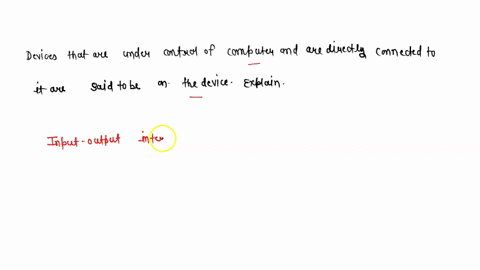 Devices that are under control of computer and are directly connected to
it are said to be on the device. Explain.
Input-output inte